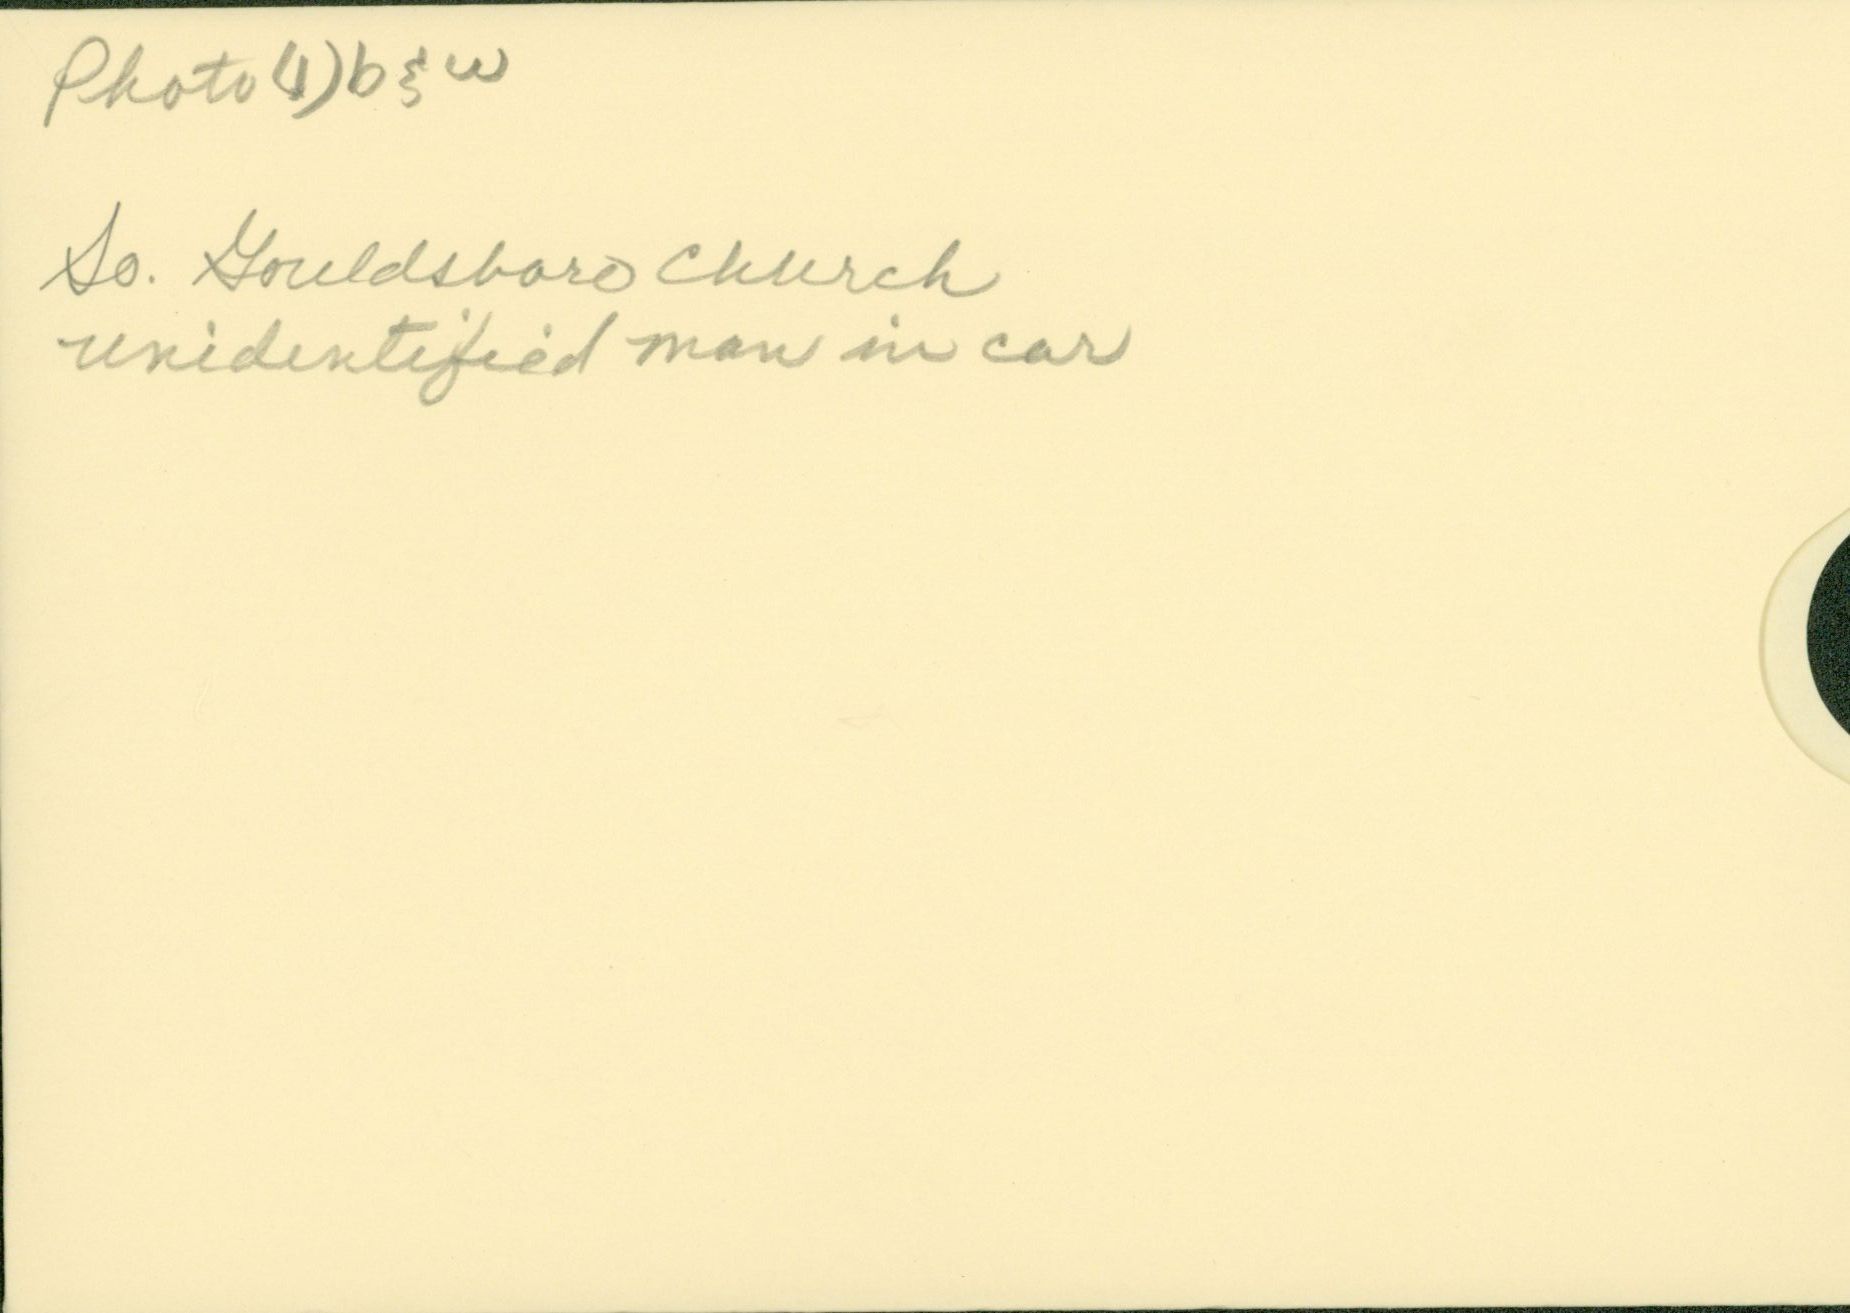 Photo (1) b & w
So. Gouldsboro Church
unidentified man in car